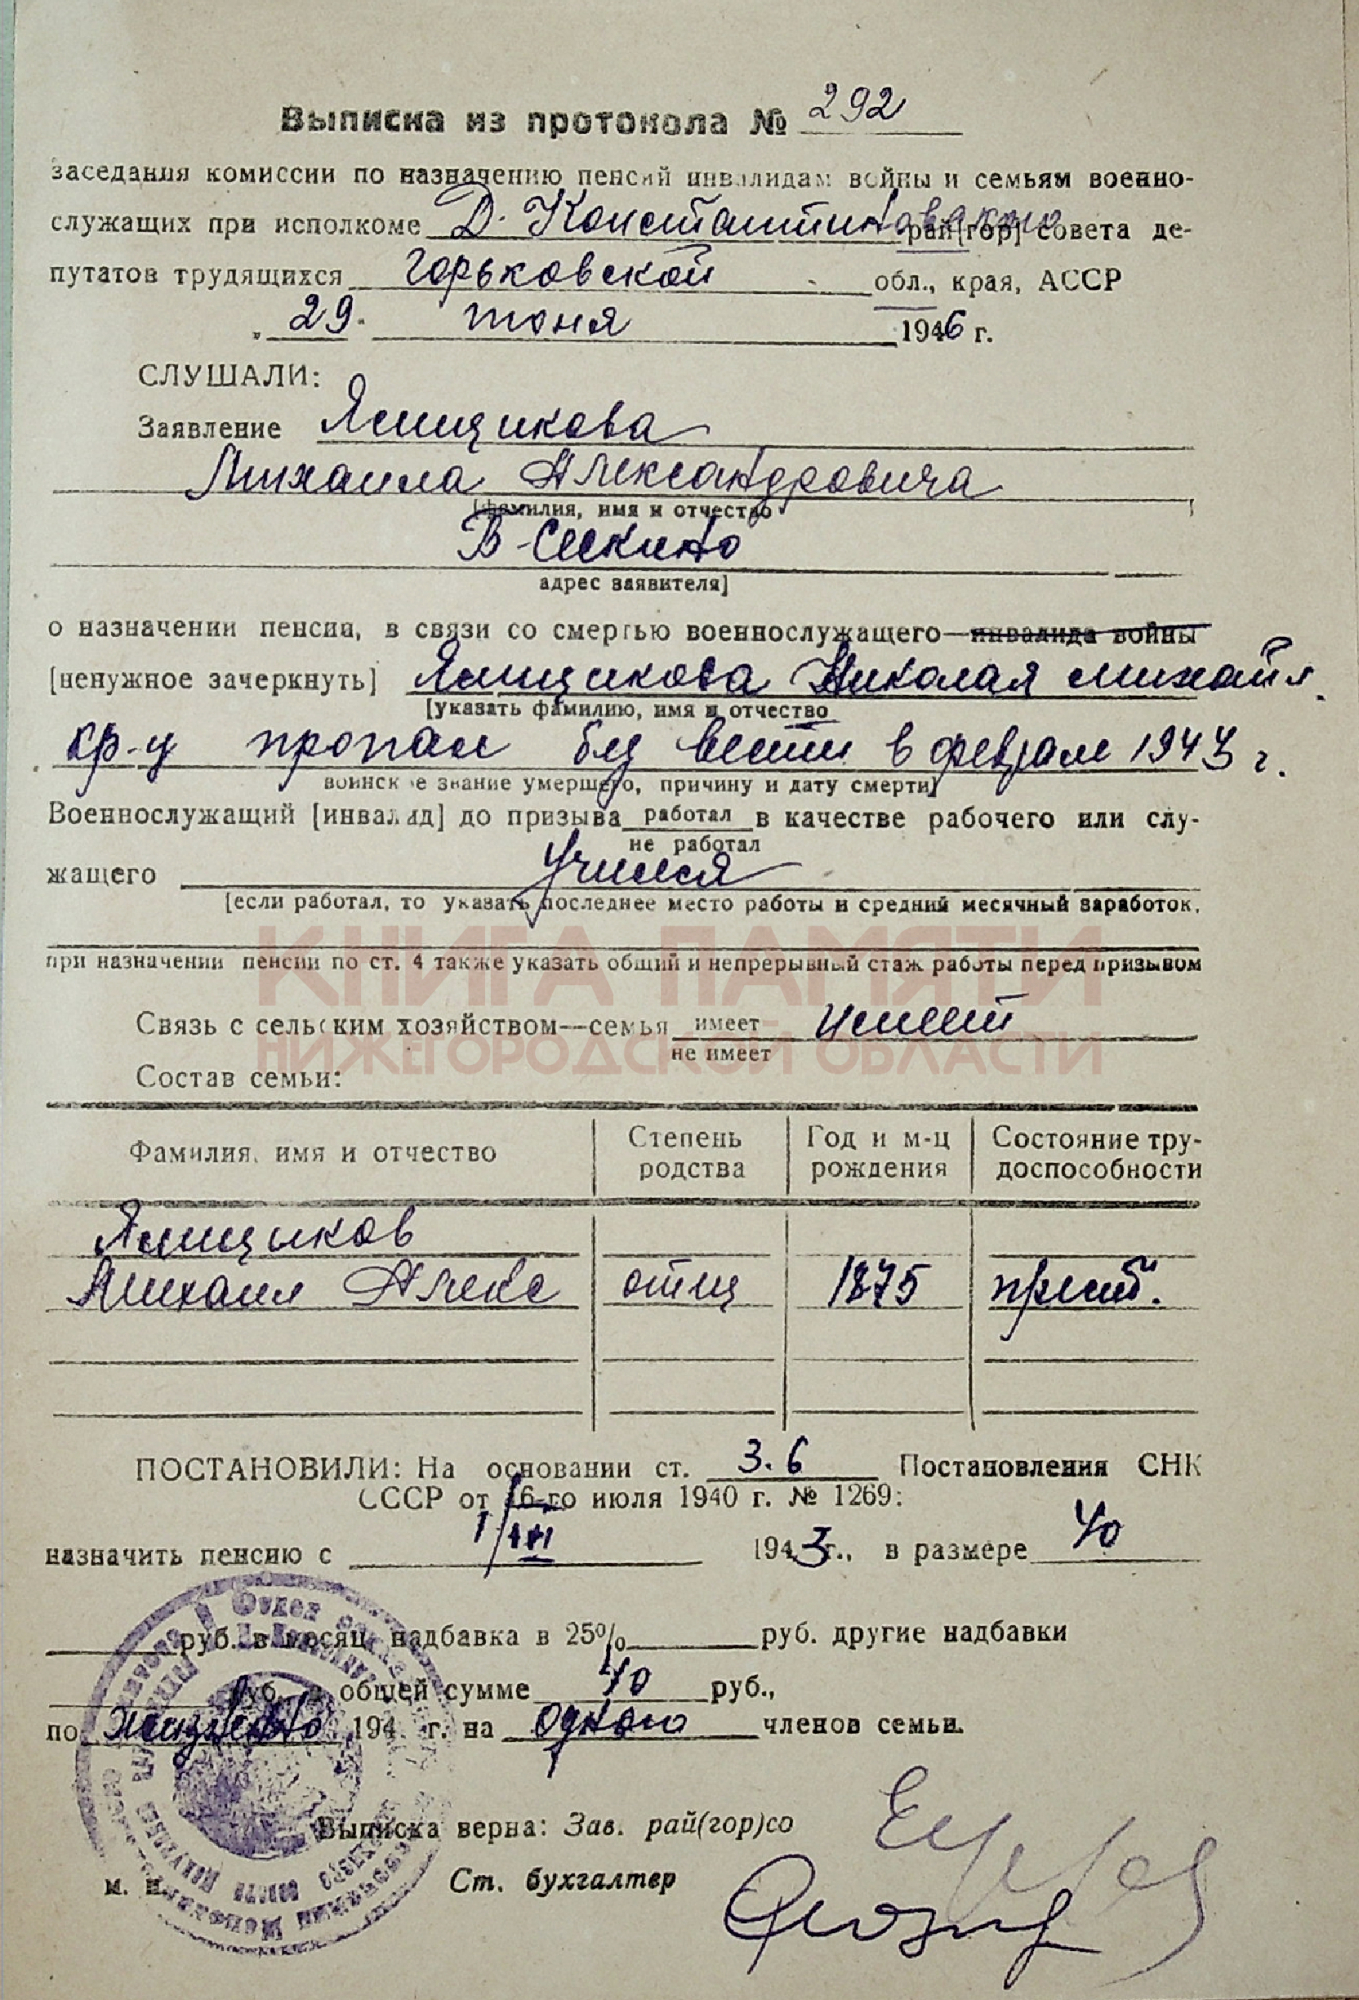 Выписка из протокола № 292
заседания комиссии по назначению пенсий инвалидам войны и семьям военно-
служащих при исполкоме Д. Константиновского рай[гор] совета де-
путатов трудящихся Горьковской обл., края, АССР
„ 29 июня 1946 г.
СЛУШАЛИ:
Заявление Ямщикова
Михаила Александровича
[фамилия, имя и отчество
В-Сескино
адрес заявителя]
о назначении пенсии, в связи со смертью военнослужащего—инвалида войны
[ненужное зачеркнуть] Ямщикова Николая Михайл.
[указать фамилию, имя и отчество
кр-ц пропал без вести в феврале 1943 г.
воинское звание умершего, причину и дату смерти]
Военнослужащий [инвалид] до призыва работал в качестве рабочего или слу-
не работал
жащего учился
[если работал, то указать последнее место работы и средний месячный заработок,
КНИГА ПАМЯТИ
при назначении пенсии по ст. 4 также указать общий и непрерывный стаж работы перед призывом
Связь с сельским хозяйством—семья имеет имеет
НИЖЕГОРОДСКОЙ ОБЛАСТИ
не имеет
Состав семьи:
Фамилия, имя и отчество Степень родства Год и м-ц рождения Состояние тру-доспособности
Ямщиков
Михаил Алекс отец 1875 прест.
ПОСТАНОВИЛИ: На основании ст. 3.6 Постановления СНК
СССР от 16-го июля 1940 г. № 1269:
назначить пенсию с 1/III 1943 г., в размере 40
руб. в месяц, надбавка в 25% руб. другие надбавки
руб. в общей сумме 40 руб.,
по пожизненно 194 г. на одного членов семьи.
Выписка верна: Зав. рай(гор)со
м. п. Ст. бухгалтер